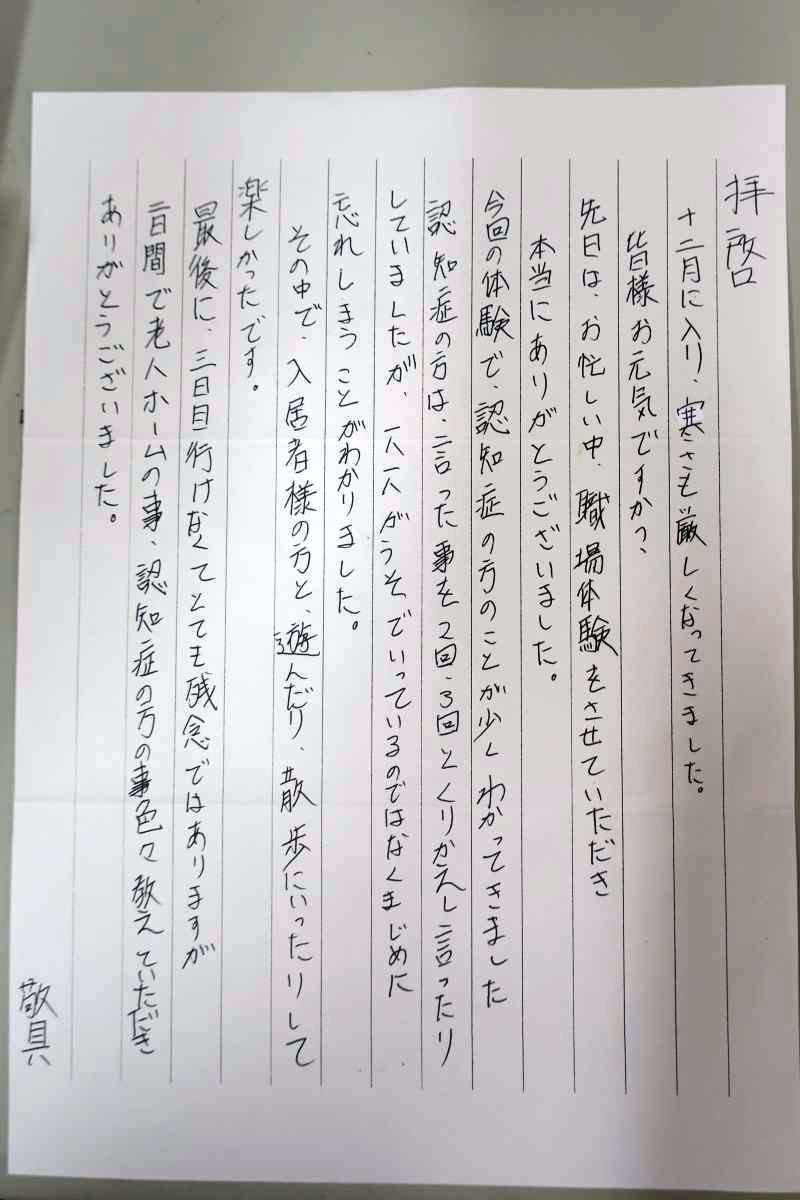 拝啓
十二月に入り、寒さも厳しくなってきました。
皆様お元気ですかっ、
先日は、お忙しい中、職場体験をさせていただき
本当にありがとうございました。
今回の体験で、認知症の方のことが少しわかってきました
認知症の方は、言った事を2回、3回とくりかえし言ったり
していましたが、一人一人がうそでいっているのではなくまじめに
忘れしまうことがわかりました。
その中で、入居者様の方と、遊んだり、散歩にいったりして
楽しかったです。
最後に、三日目行けなくてとても残念ではありますが
二日間で老人ホームの事、認知症の方の事色々教えていただき
ありがとうございました。
敬具